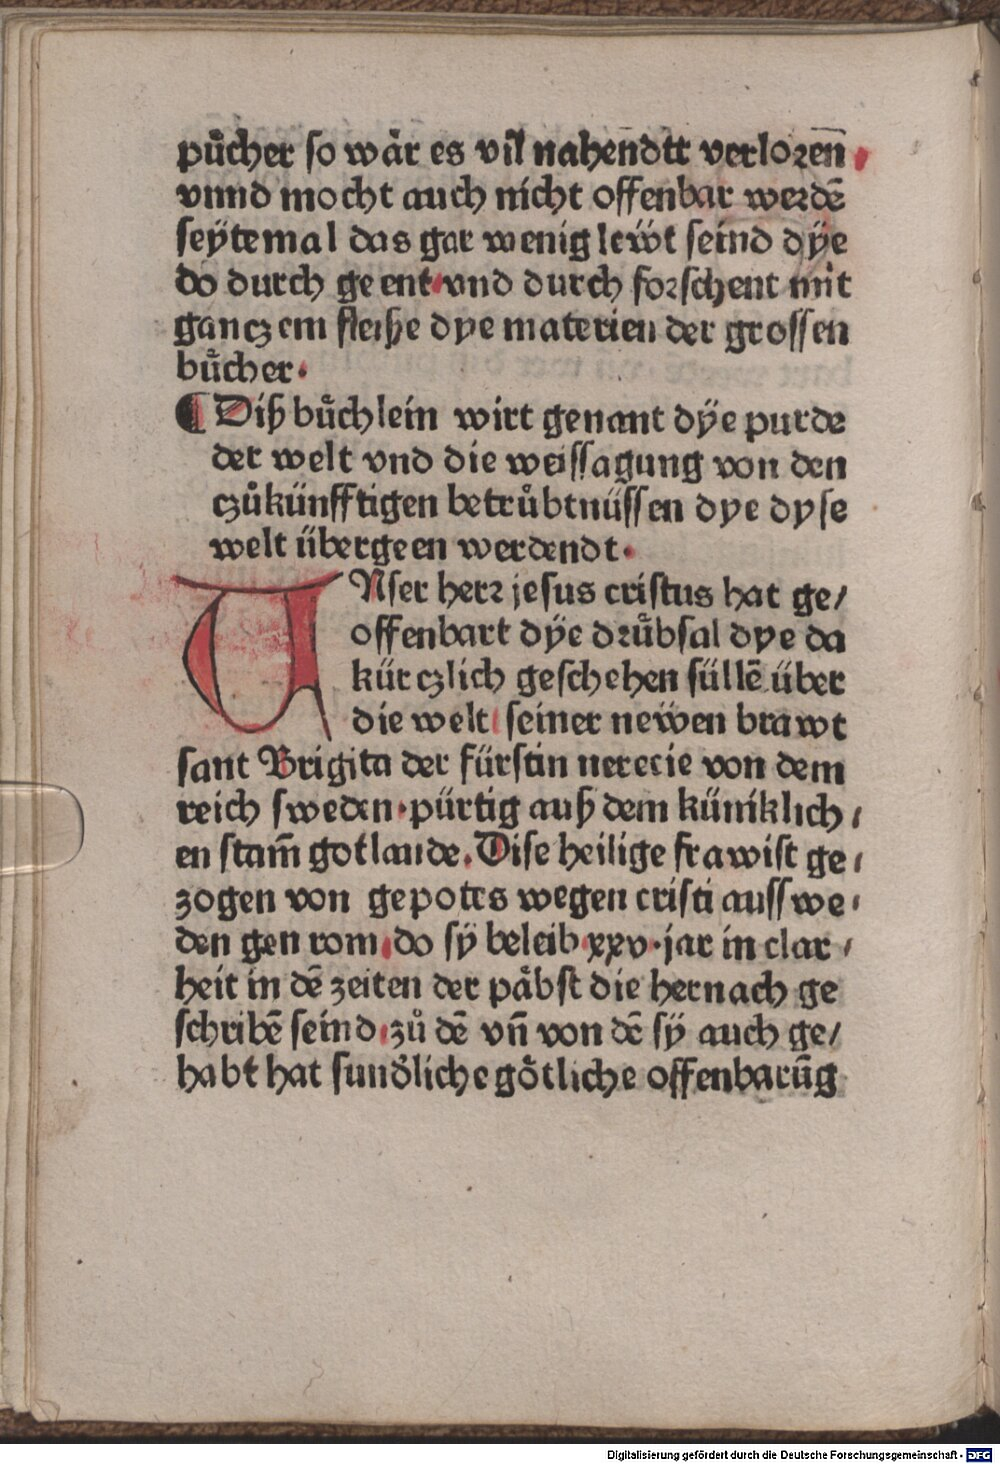 puͤcher so waͤr es vil nahendtt verlorenn̄
vnnd mocht auch nicht offenbar werdē
seÿtemal das gar wenig lewͤt seind dÿe
do durch geent vnd durch forschent mit
ganczem fleiße dye materien der grossen
buͤcher.
¶ Diß buͤchlein wirt genant dÿe purde
der welt vnd die weissagung von den
czuͦkünfftigen betruͤbtnüssen dye dyse
welt übergeen werdendt.
UNser herr jesus cristus hat ge/
offenbart dÿe druͤbsal dye da
kürczlich geschehen süllē über
die welt seiner neẅen brawt
sant Brigita der fürstin nerecie von dem
reich sweden·pürtig auß dem küniklich/
en stam̄ gotlande. Dise heilige frawist ge/
zogen von gepottes wegen cristi auss swe/
den gen rom, do sÿ beleib xxv·jar in clar/
heit in dē zeiten der paͤbst die hernach ge
schribē seind, zuͦ dē vn̄ von dē sÿ auch ge/
habt hat sundͤliche goͤtliche offenbarūg
Digitalisierung gefördert durch die Deutsche Forschungsgemeinschaft - DFG